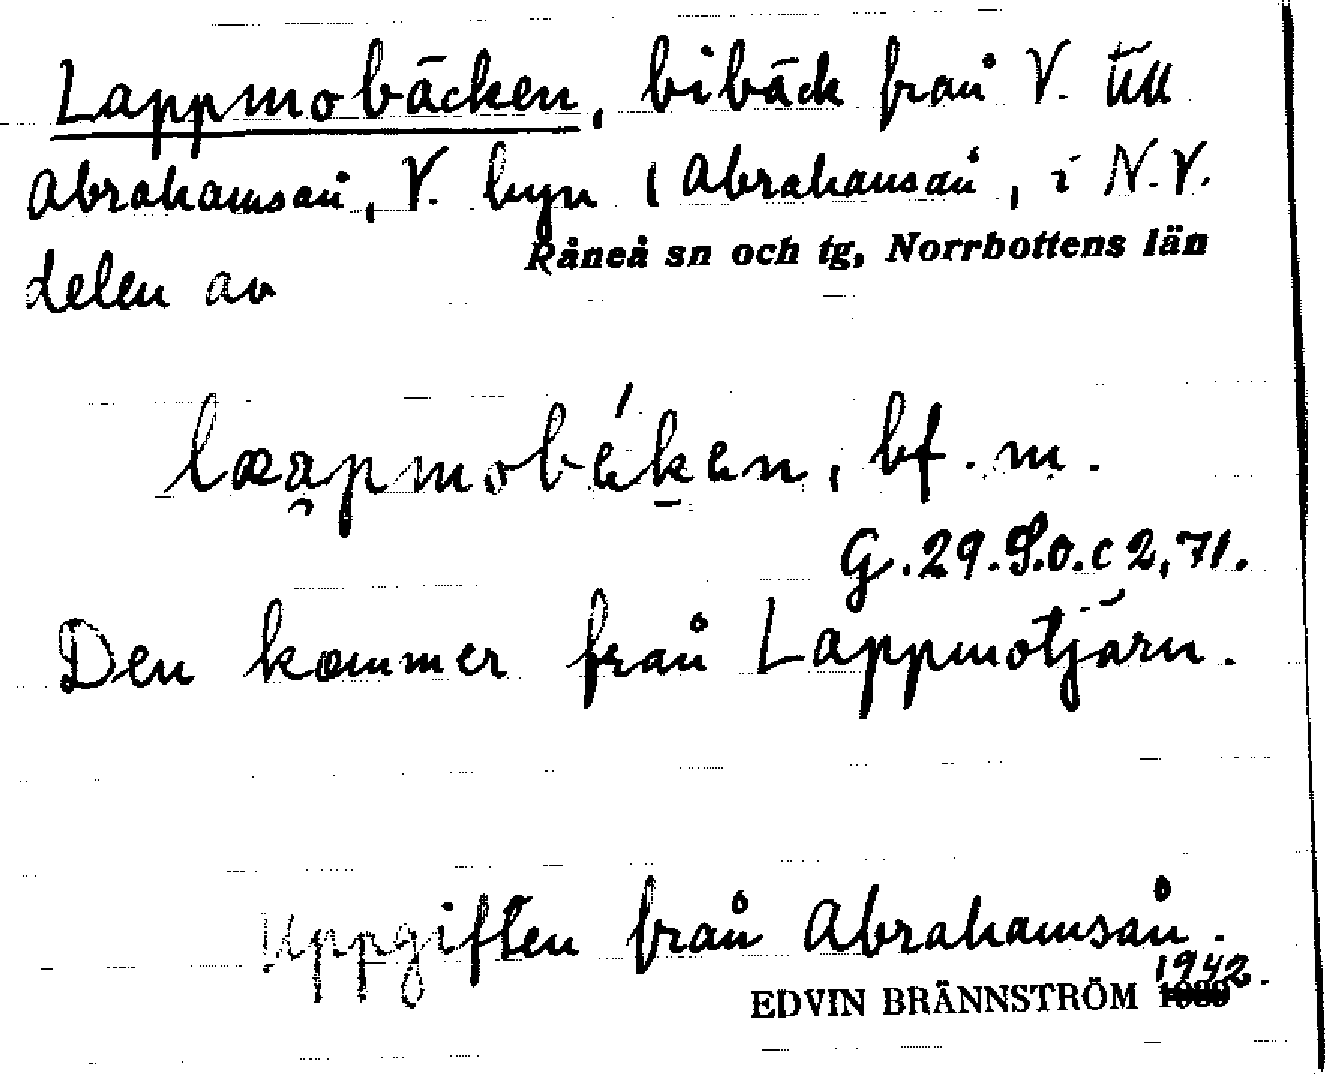 Lappmobäcken, bibäck från V. till
Abrahamsån, V. byn i Abrahamsån, i N.V.
Råneå sn och tg, Norrbottens län
delen av
bf. m.
G. 29. S.O. c 2,71.
Den kommer från Lappmotjärn.
Uppgiften från Abrahamsån.
1942.
EDVIN BRÄNNSTRÖM